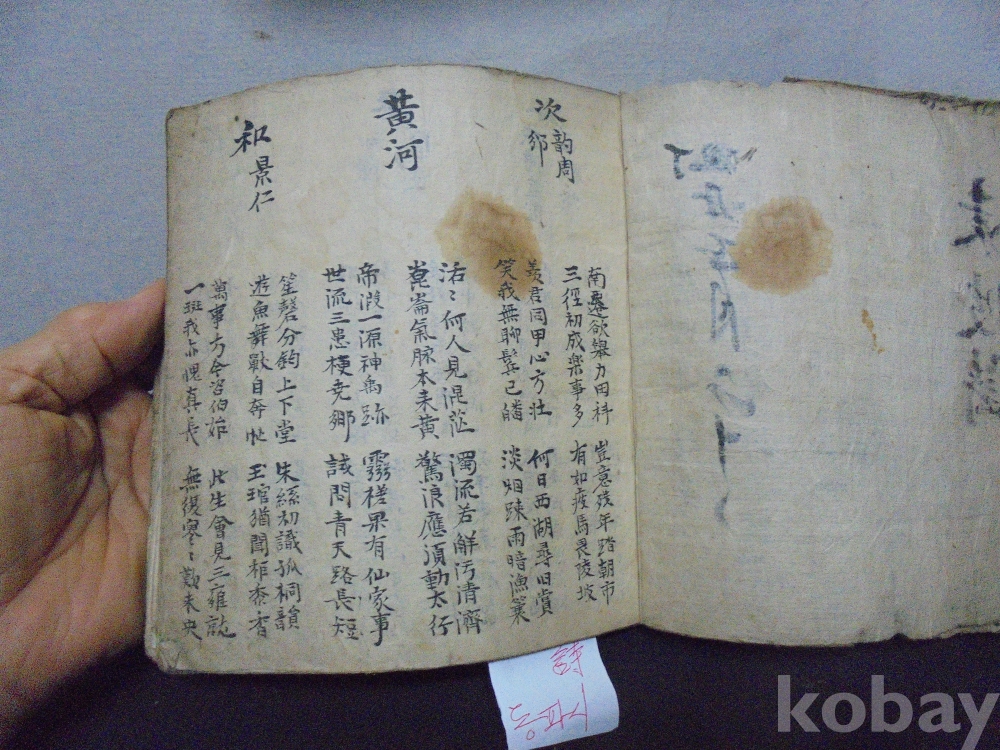 次韵周邠
南遷欲舉力田科 豈意殘年踏朝市
三徑初成樂事多 有如疲馬畏陵坡
羨君同甲心方壯 何日西湖尋旧賞
笑我無聊鬢已皤 淡烟踈雨暗漁簑
黃河
活〻何人見混茫 濁流若解汚清濟
崑崙氣脉本来黃 驚浪應須動太行
帝假一源神禹跡 靈槎果有仙家事
世流三患梗尭鄉 試問青天路長短
和景仁
笙磬分鈞上下堂 朱絲初識孤桐韻
遊魚舞獸自奔忙 玉琯猶聞秬黍香
萬事方今咨伯始 此生會見三雍就
一斑我亦愧真長 無復寥〻歎未央
詩
동파시
kobay